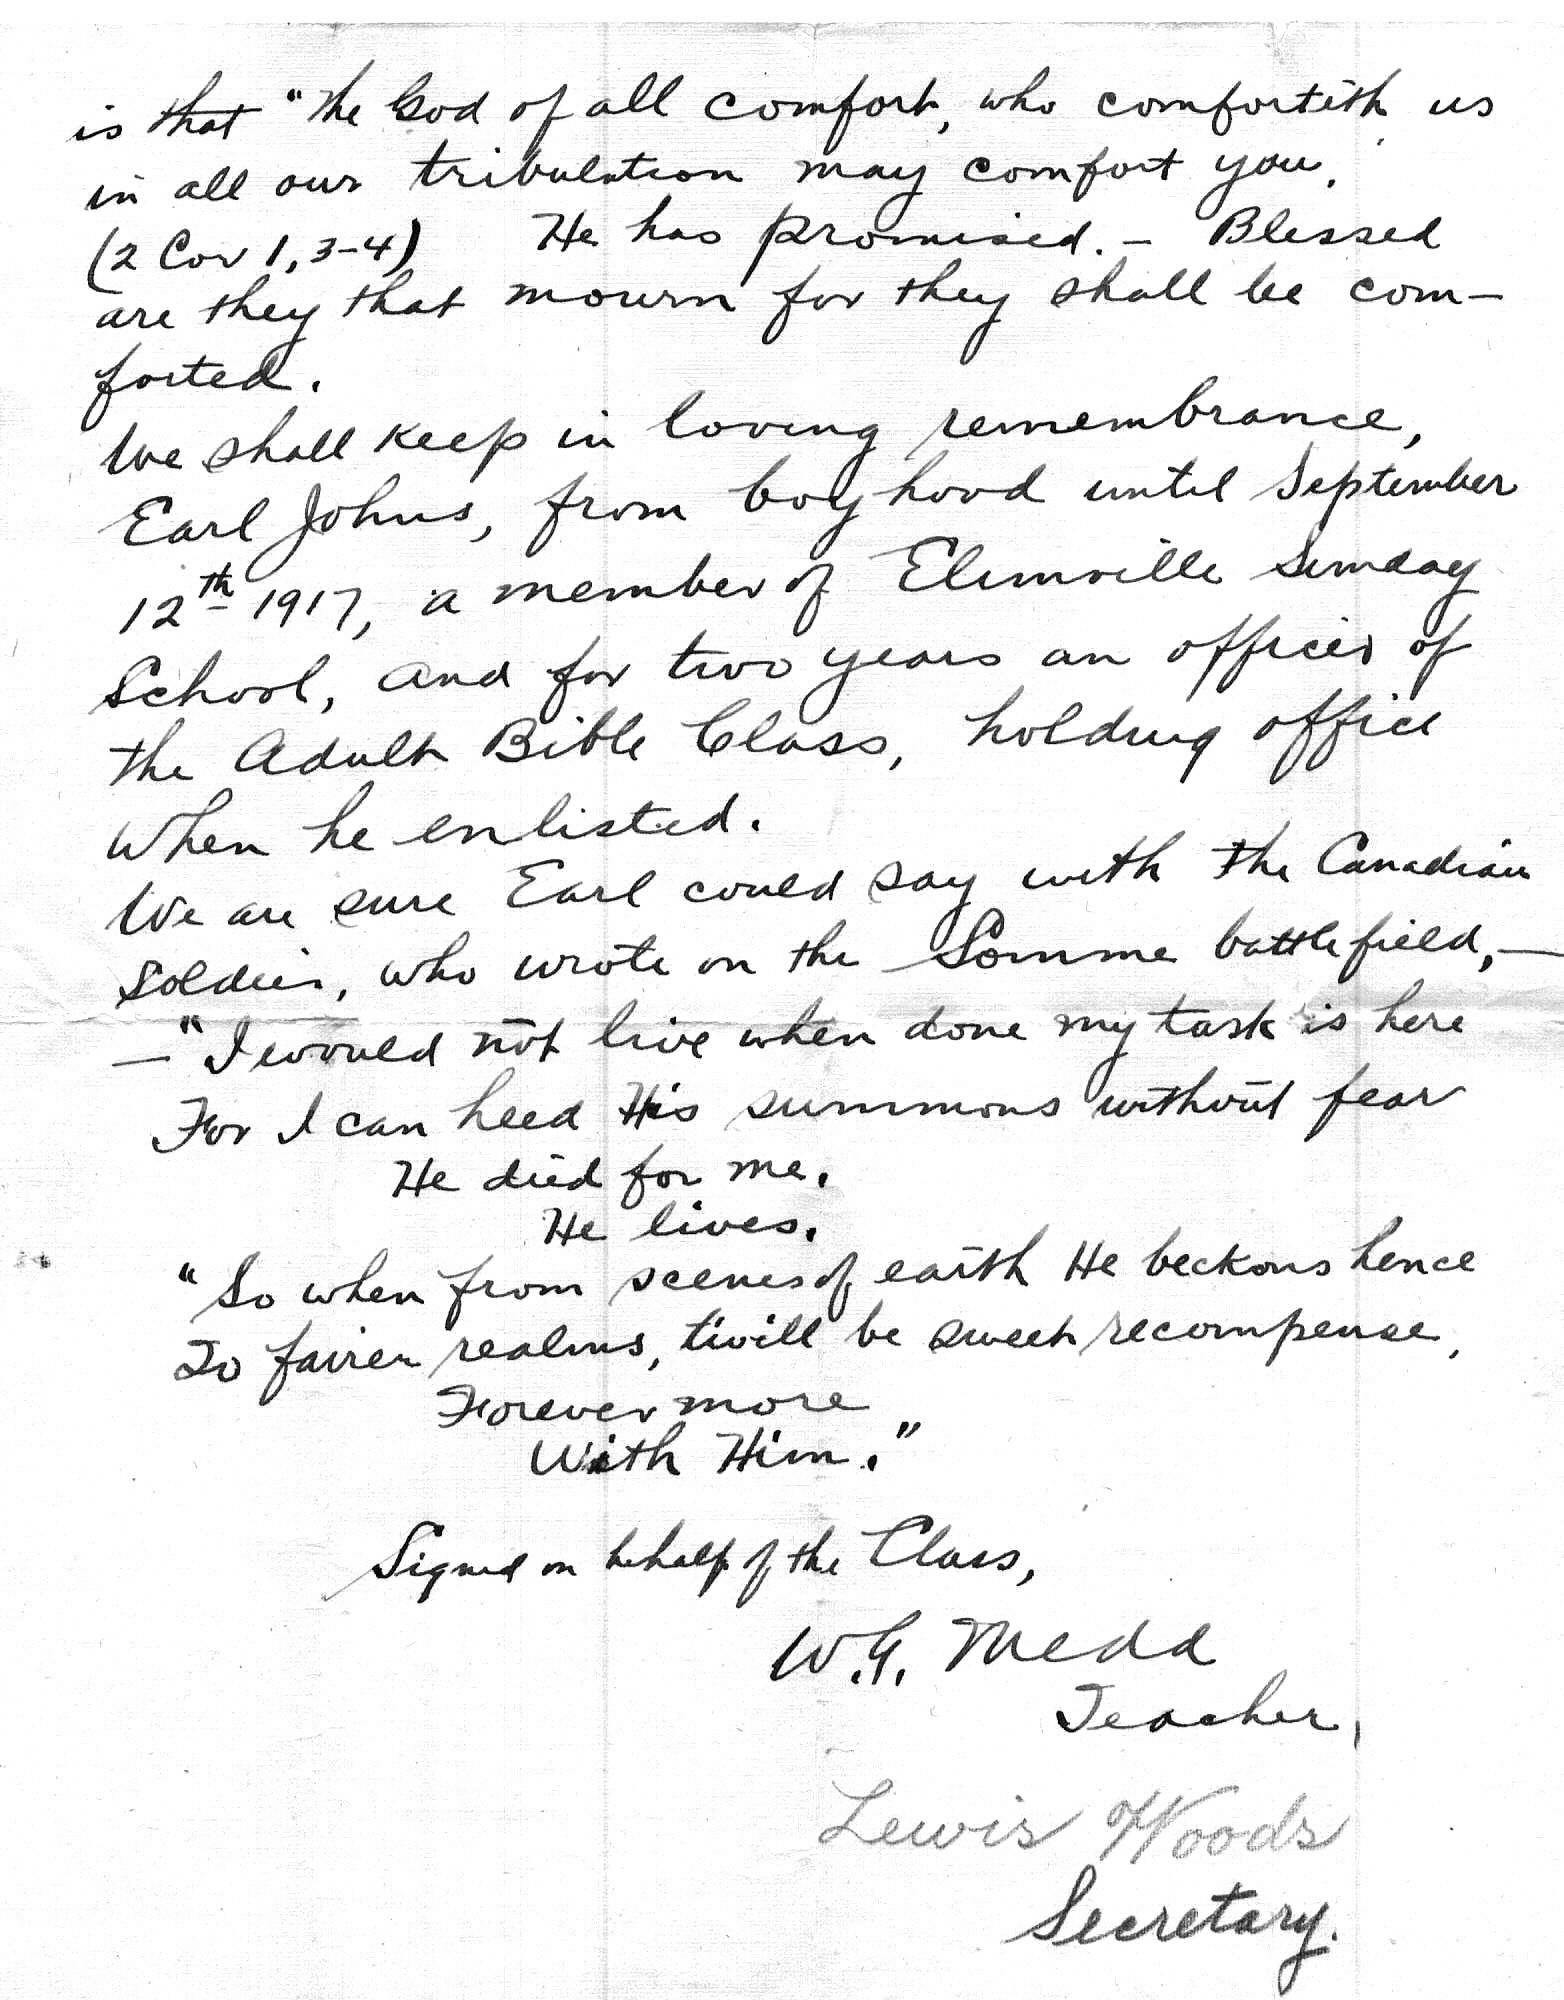 is that "the God of all comfort, who comforteth us
in all our tribulation may comfort you.
(2 Cor 1, 3-4) He has promised. - Blessed
are they that mourn for they shall be com-
forted.
We shall keep in loving remembrance,
Earl Johns, from boyhood until September
12th 1917, a member of Elimville Sunday
School, and for two years an officer of
the Adult Bible Class, holding office
when he enlisted.
We are sure Earl could say with the Canadian
soldier, who wrote on the Somme battlefield, -
- "I would not live when done my task is here
For I can heed His summons without fear
He died for me.
He lives.
"So when from scenes of earth He beckons hence
To fairer realms, twill be sweet recompense,
Forever more
With Him."
Signed on behalf of the Class,
W.G. Medd
Teacher,
Lewis Woods
Secretary.